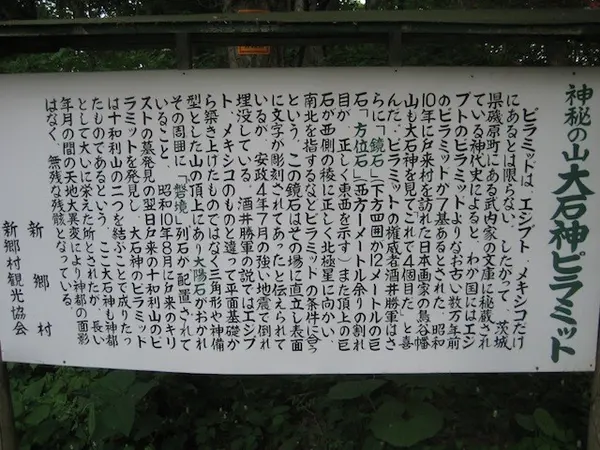 神秘の山大石神ピラミット
ピラミットは、エジプト、メキシコだけ
にあるとは限らない。したがって、茨城
県磯原町にある武内家の文庫に秘蔵され
ている神代史によると、わか国にはエジ
プトのピラミットよりなお古い数万年前
のピラミットが7基あるとされた。昭和
10年に戸来村を訪れた日本画家の鳥谷幡
山も大石神を見て「これて4個目だ」と喜
んだ。ピラミットの権威者酒井勝軍はさ
らに「鏡石」(下方四囲が12メートルの巨
石「方位石」(西方一メートル余りの割れ
目か、正しく東西を示す)また頂上の巨
石が西側の稜に正しく北極星に向かい、
南北を指するなどピラミットの条件に合っ
という。この鏡石はその場に直立し表面
に文字が彫刻されてあったと伝えられて
いるか、安政4年7月の強い地震て倒れ
埋没している。酒井勝軍の説てはエジプ
ト、メキシコのものと違って平面基礎か
ら築き上げたものてはなく三角形や神備
型とした山の頂上にあり太陽石がおかれ
その周囲に「磐境」列石か配置されて
いること、昭和10年8月に戸来のキリ
ストの墓発見の翌日戸来の十和利山のピ
ラミットを発見し、大石神のピラミット
は十和利山の二つを結ぶことて成りたっ
たものてあるという。ここ大石神も神都
として大いに栄えた所とされたか、長い
年月の間の天地大異変により神都の面影
はなく、無残な残骸となっている。
新郷村
新郷村観光協会